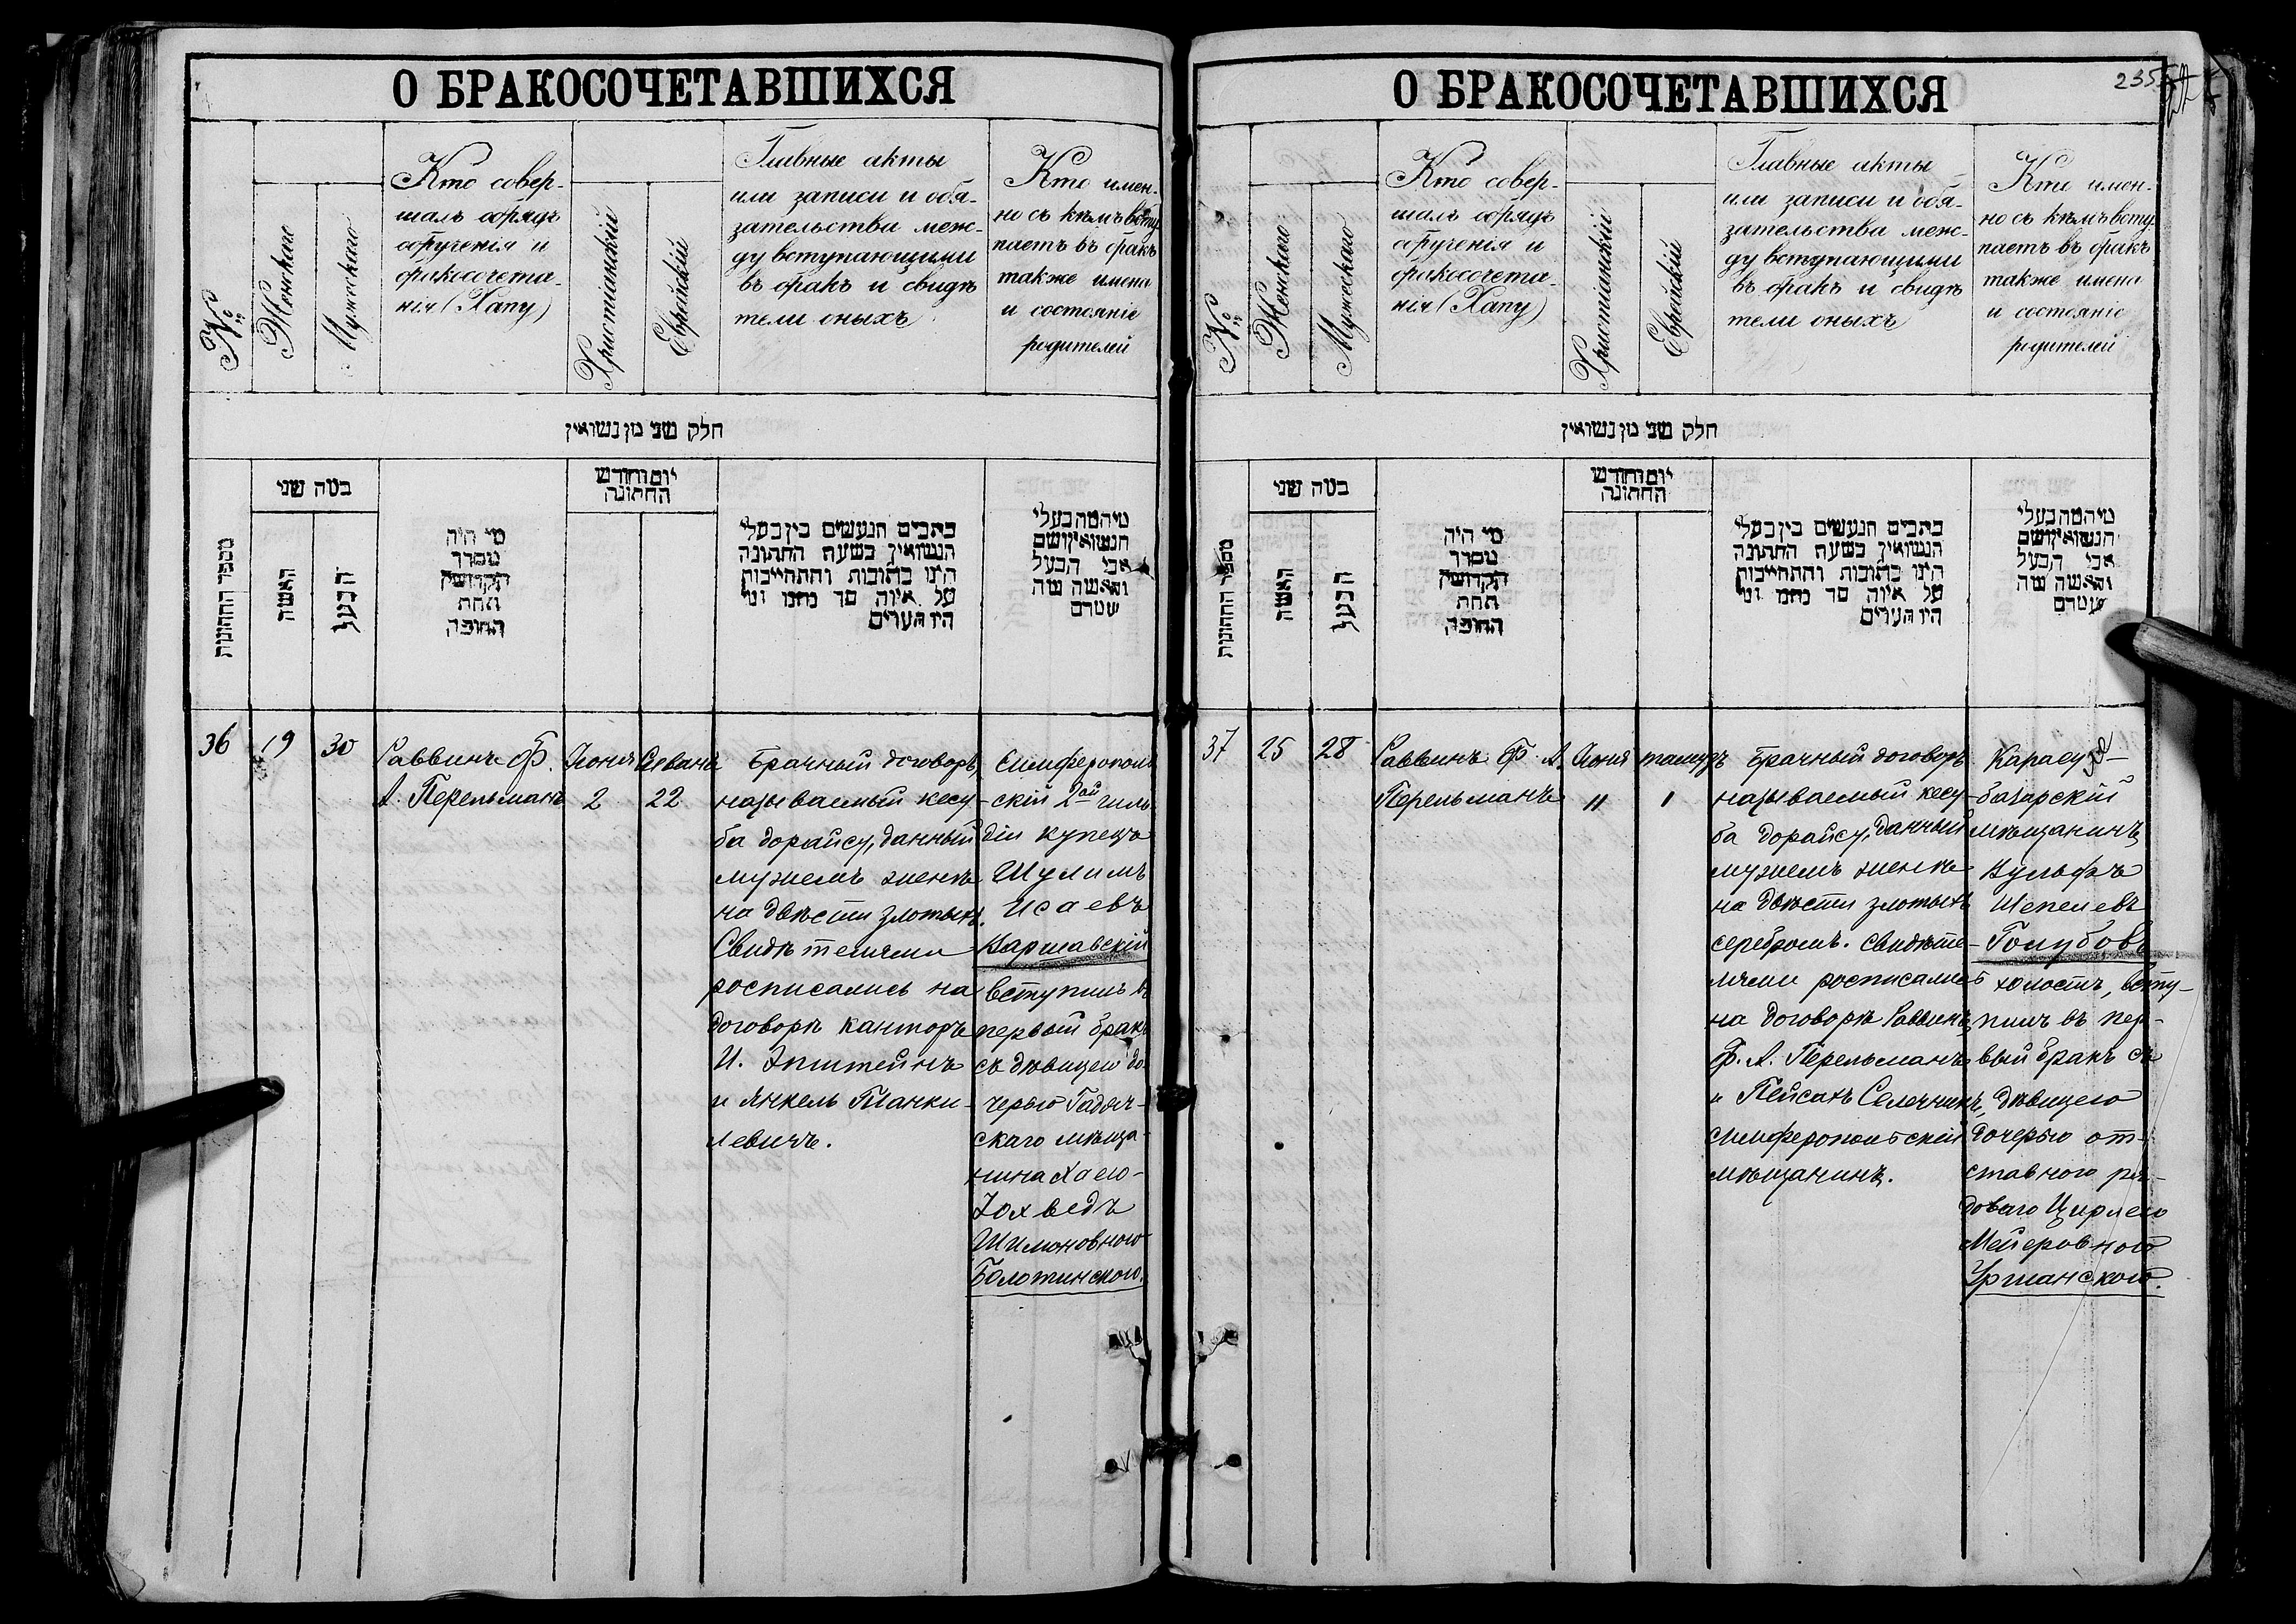 О БРАКОСОЧЕТАВШИХСЯ
№
Женскаго
Мужескаго
Кто совер-
шалъ обрядъ
обрученія и
бракосочета-
нія (Хапу)
Христіанскій
Еврейскій
Главные акты
или записи и обя-
зательства меж-
ду вступающими
въ бракъ и свидѣ
тели оныхъ
Кто имен-
но съ кѣмъ всту
паетъ въ бракъ
также имена
и состояніе
родителей
חלק שני מן נשואין
מספר החתונות
האשה
הבעל
מי היה
מסדר
הקדושין
תחת
החופה
יום וחודש
החתונה
כתבים הנעשים בין בעלי
הנשואין בשעת החתונה
היינו כתובות והתחייבות
על איזה סך
היו העדים
הנשואין ושם
אבי הבעל
והאשה
36
19
30
Раввинъ Ф.
А. Перельманъ
Іюня
2
Сивана
22
Брачный договоръ,
называемый кесу-
ба дорайсу, данный
мужемъ женѣ
на двѣсти злотыхъ.
Свидѣтелями
росписались на
договорѣ канторъ
И. Эпштейнъ
и Янкель Планки-
левичъ.
Симферополь
скій 2ой гиль
діи купецъ
Шулимъ
Исаевъ
Варшавскій
вступилъ въ
первый бракъ
съ дѣвицею до-
черью Гадяч-
скаго мѣща-
нина Хаею-
Іохведъ
Шимоновною
Болотинскою.
О БРАКОСОЧЕТАВШИХСЯ
235
№
Женскаго
Мужескаго
Кто совер-
шалъ обрядъ
обрученія и
бракосочета-
нія (Хапу)
Христіанскій
Еврейскій
Главные акты
или записи и обя-
зательства меж-
ду вступающими
въ бракъ и свидѣ
тели оныхъ
Кто имен-
но съ кѣмъ всту
паетъ въ бракъ
также имена
и состояніе
родителей
חלק שני מן נשואין
מספר החתונות
האשה
הבעל
מי היה
מסדר
הקדושין
תחת
החופה
יום וחודש
החתונה
כתבים הנעשים בין בעלי
הנשואין בשעת החתונה
היינו כתובות והתחייבות
על איזה סך
היו העדים
הנשואין ושם
אבי הבעל
והאשה
37
25
28
Раввинъ Ф. А.
Перельманъ
Іюня
11
тамузъ
1
Брачный договоръ
называемый кесу-
ба дорайсу, данный
мужемъ женѣ
на двѣсти злотыхъ
серебромъ. Свидѣте-
лями росписались
на договорѣ Раввинъ
Ф. А. Перельманъ
и Пейсахъ Селечникъ,
симферопольскій
мѣщанинъ.
Карасуз-
базарскій
мѣщанинъ
Вульфъ
Шепелевъ
Голубовъ
холостъ, всту-
пилъ въ пер-
вый бракъ съ
дѣвицею
дочерью от-
ставного ря-
доваго Цирлею
Мейеровною
Уршанскою.